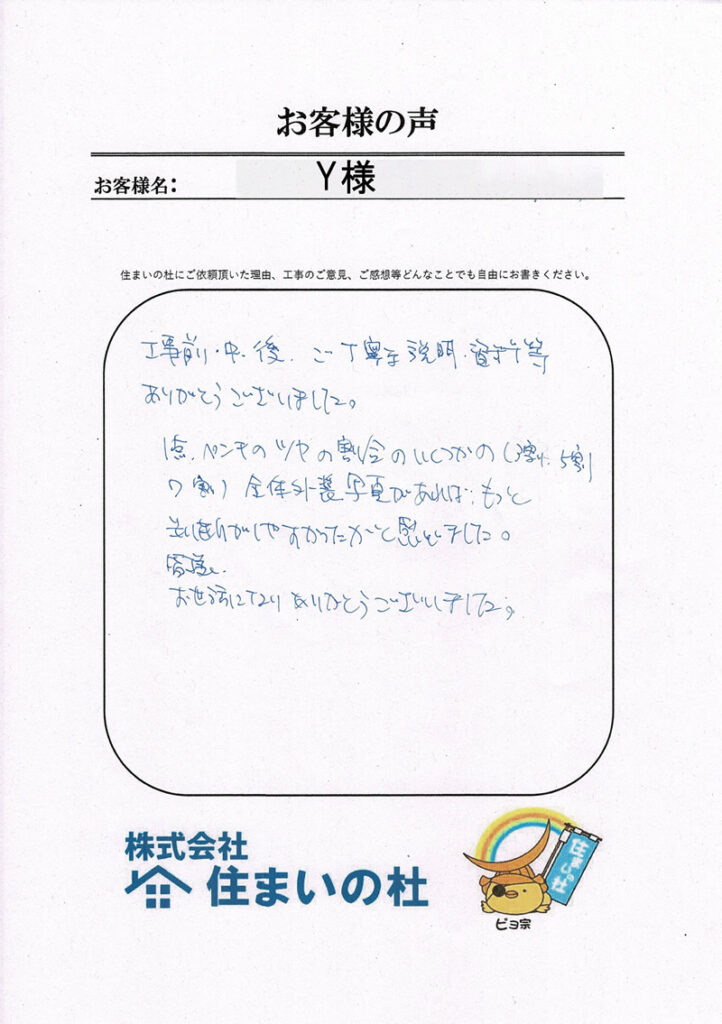 お客様の声
お客様名: Y様
住まいの杜にご依頼頂いた理由、工事のご意見、ご感想等どんなことでも自由にお書きください。
工事前・中・後、ご丁寧な説明・資料等
ありがとうございました。
1点、ペンキのツヤの割合のいくつかの(3割、5割
7割)全体外装写真があれば、もっと
しやすかったかと感じました。
お世話になり ありがとうございました。
株式会社
住まいの杜
住まいの杜
ピヨ宗